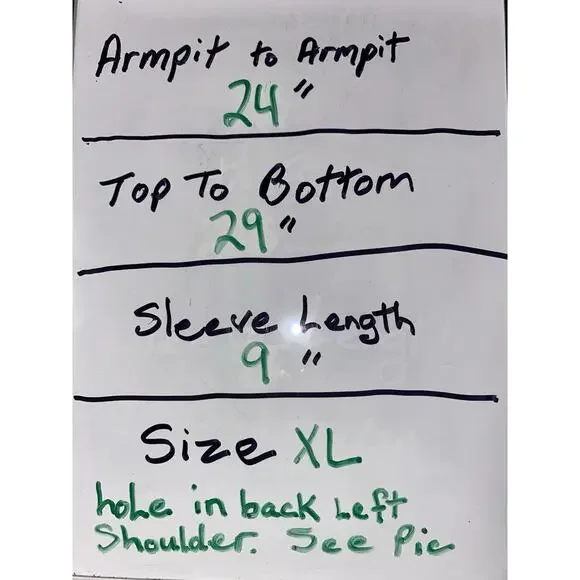 Armpit to Armpit
24"
Top To Bottom
29"
Sleeve Length
9"
Size XL
hole in back Left
Shoulder. See Pic